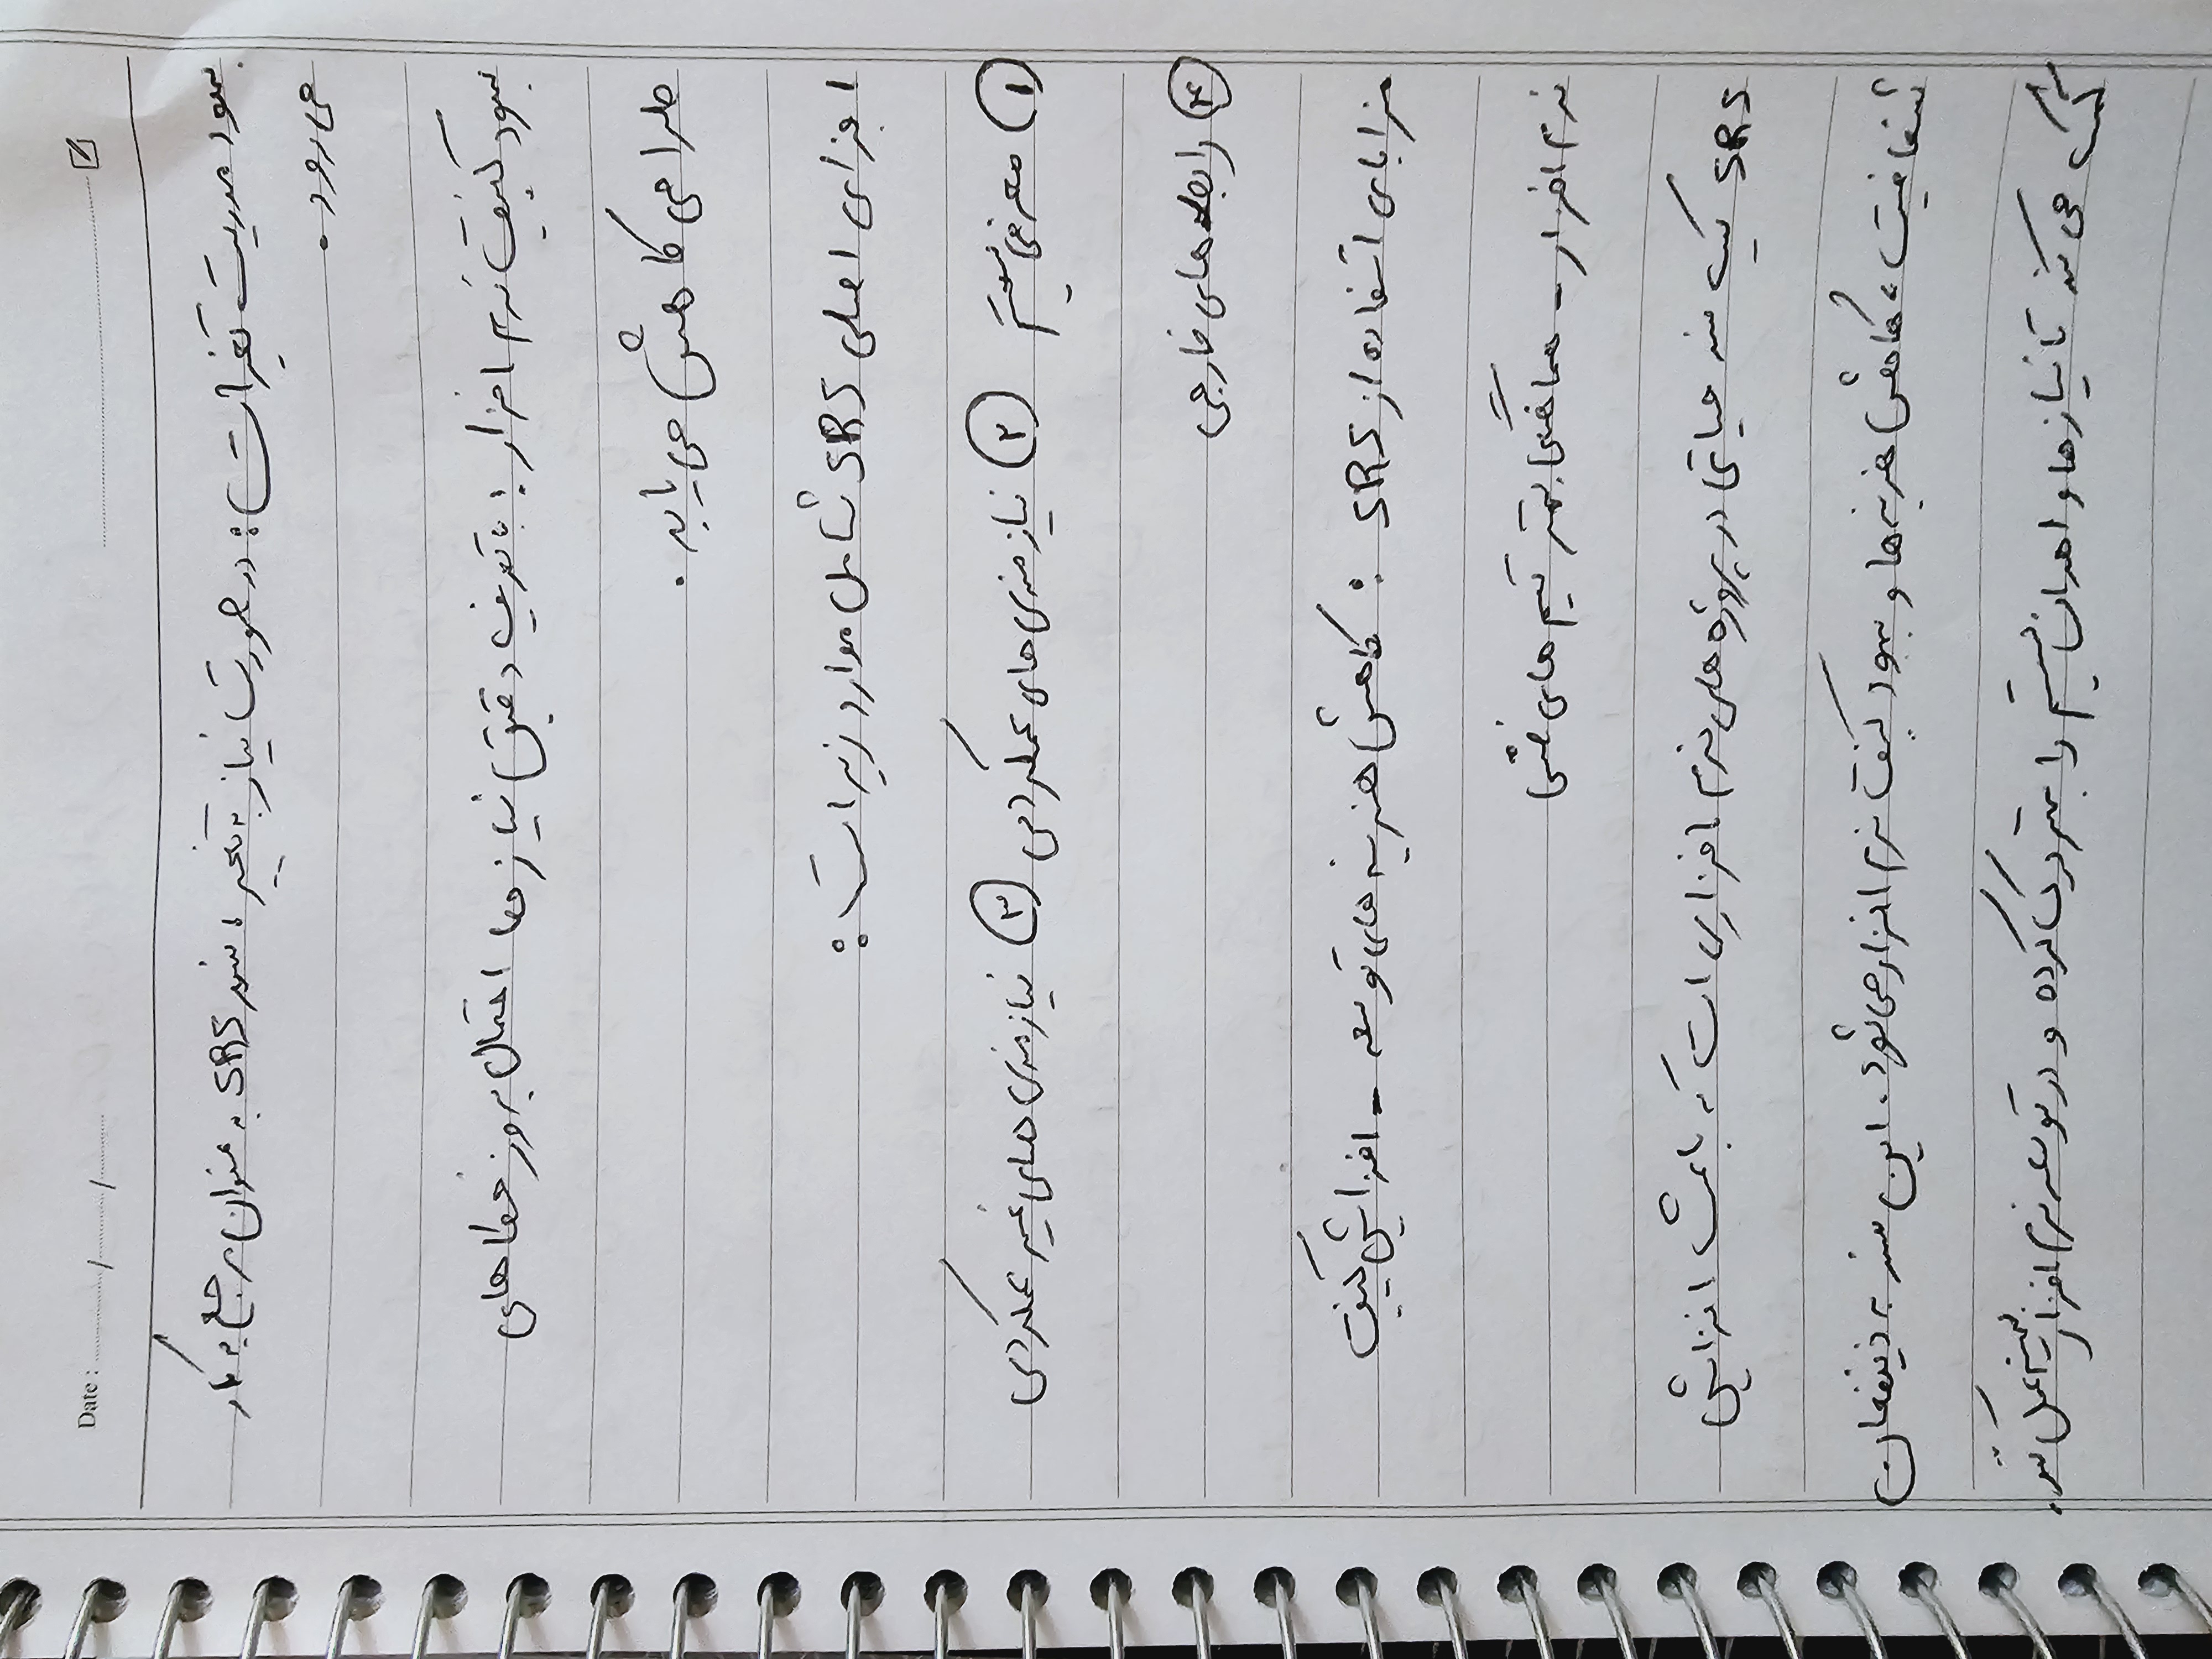 Date : ........../........../..........
بهبود مدیریت تغییرات : در صورت نیاز به تغییر ، سند SRS به عنوان مرجع به کار
می رود .
بهبود کیفیت نرم افزار : با تعریف دقیق نیازها احتمال بروز خطاهای
طراحی کاهش می یابد .
اجزای اصلی SRS شامل موارد زیر است :
① معرفی سیستم ② نیازمندی های عملکردی ③ نیازمندی های غیر عملکردی
④ رابط های خارجی
مزایای استفاده از SRS : کاهش هزینه های توسعه - افزایش کیفیت
نرم افزار - هماهنگی بهتر تیم های فنی
SRS یک سند حیاتی در پروژه های نرم افزاری است که باعث افزایش
شفافیت ، کاهش هزینه ها و بهبود کیفیت نرم افزار می شود . این سند به ذینفعان
کمک می کند تا نیازها و اهداف سیستم را بهتر درک کرده و در توسعه نرم افزار بهینه عمل کنند .